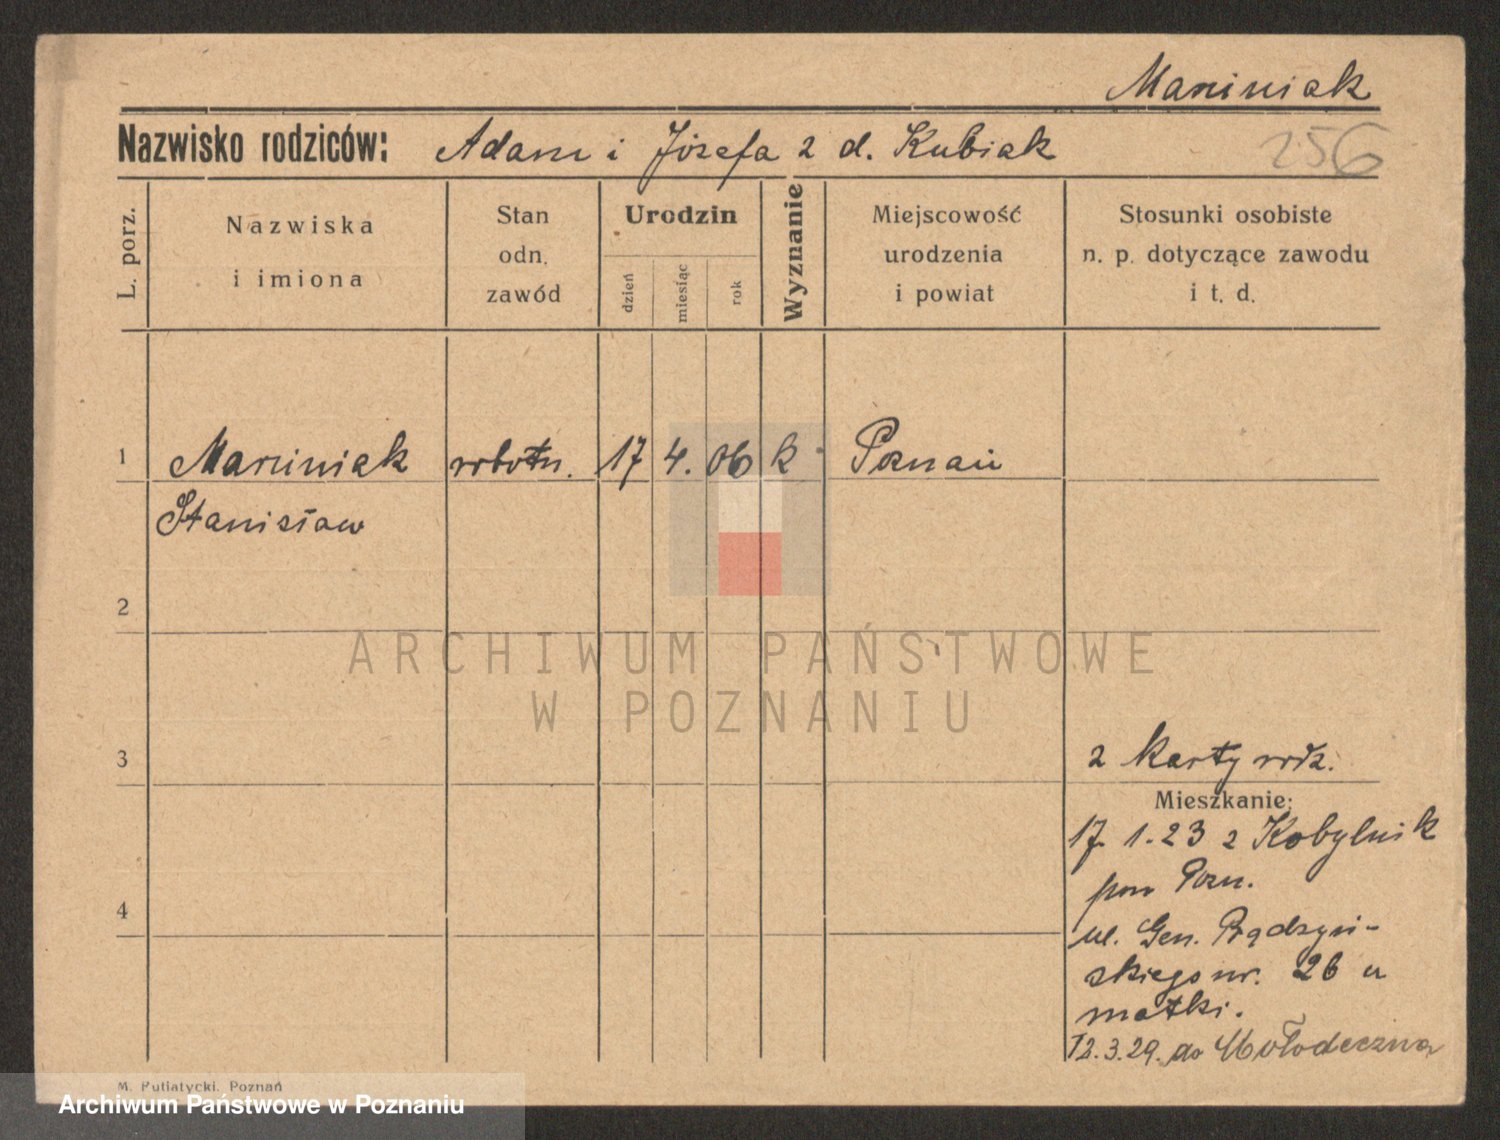 Marciniak
Nazwisko rodziców: Adam i Józefa z d. Kubiak
256
L. porz.
Nazwiska
i imiona
Stan
odn.
zawód
Urodzin
dzień
miesiąc
rok
Wyznanie
Miejscowość
urodzenia
i powiat
Stosunki osobiste
n. p. dotyczące zawodu
i t. d.
1 Marciniak robotn. 17 4. 06 k Poznań
Stanisław
2
ARCHIWUM PAŃSTWOWE
W POZNANIU
3
z karty rodz.
Mieszkanie:
17. 1. 23 z Kobylnik
pow Pozn.
4
ul. Gen. Prądzyń-
skiego nr. 26 u
matki.
12.3.29. do Mołodeczna
M. Putiatycki, Poznań
Archiwum Państwowe w Poznaniu